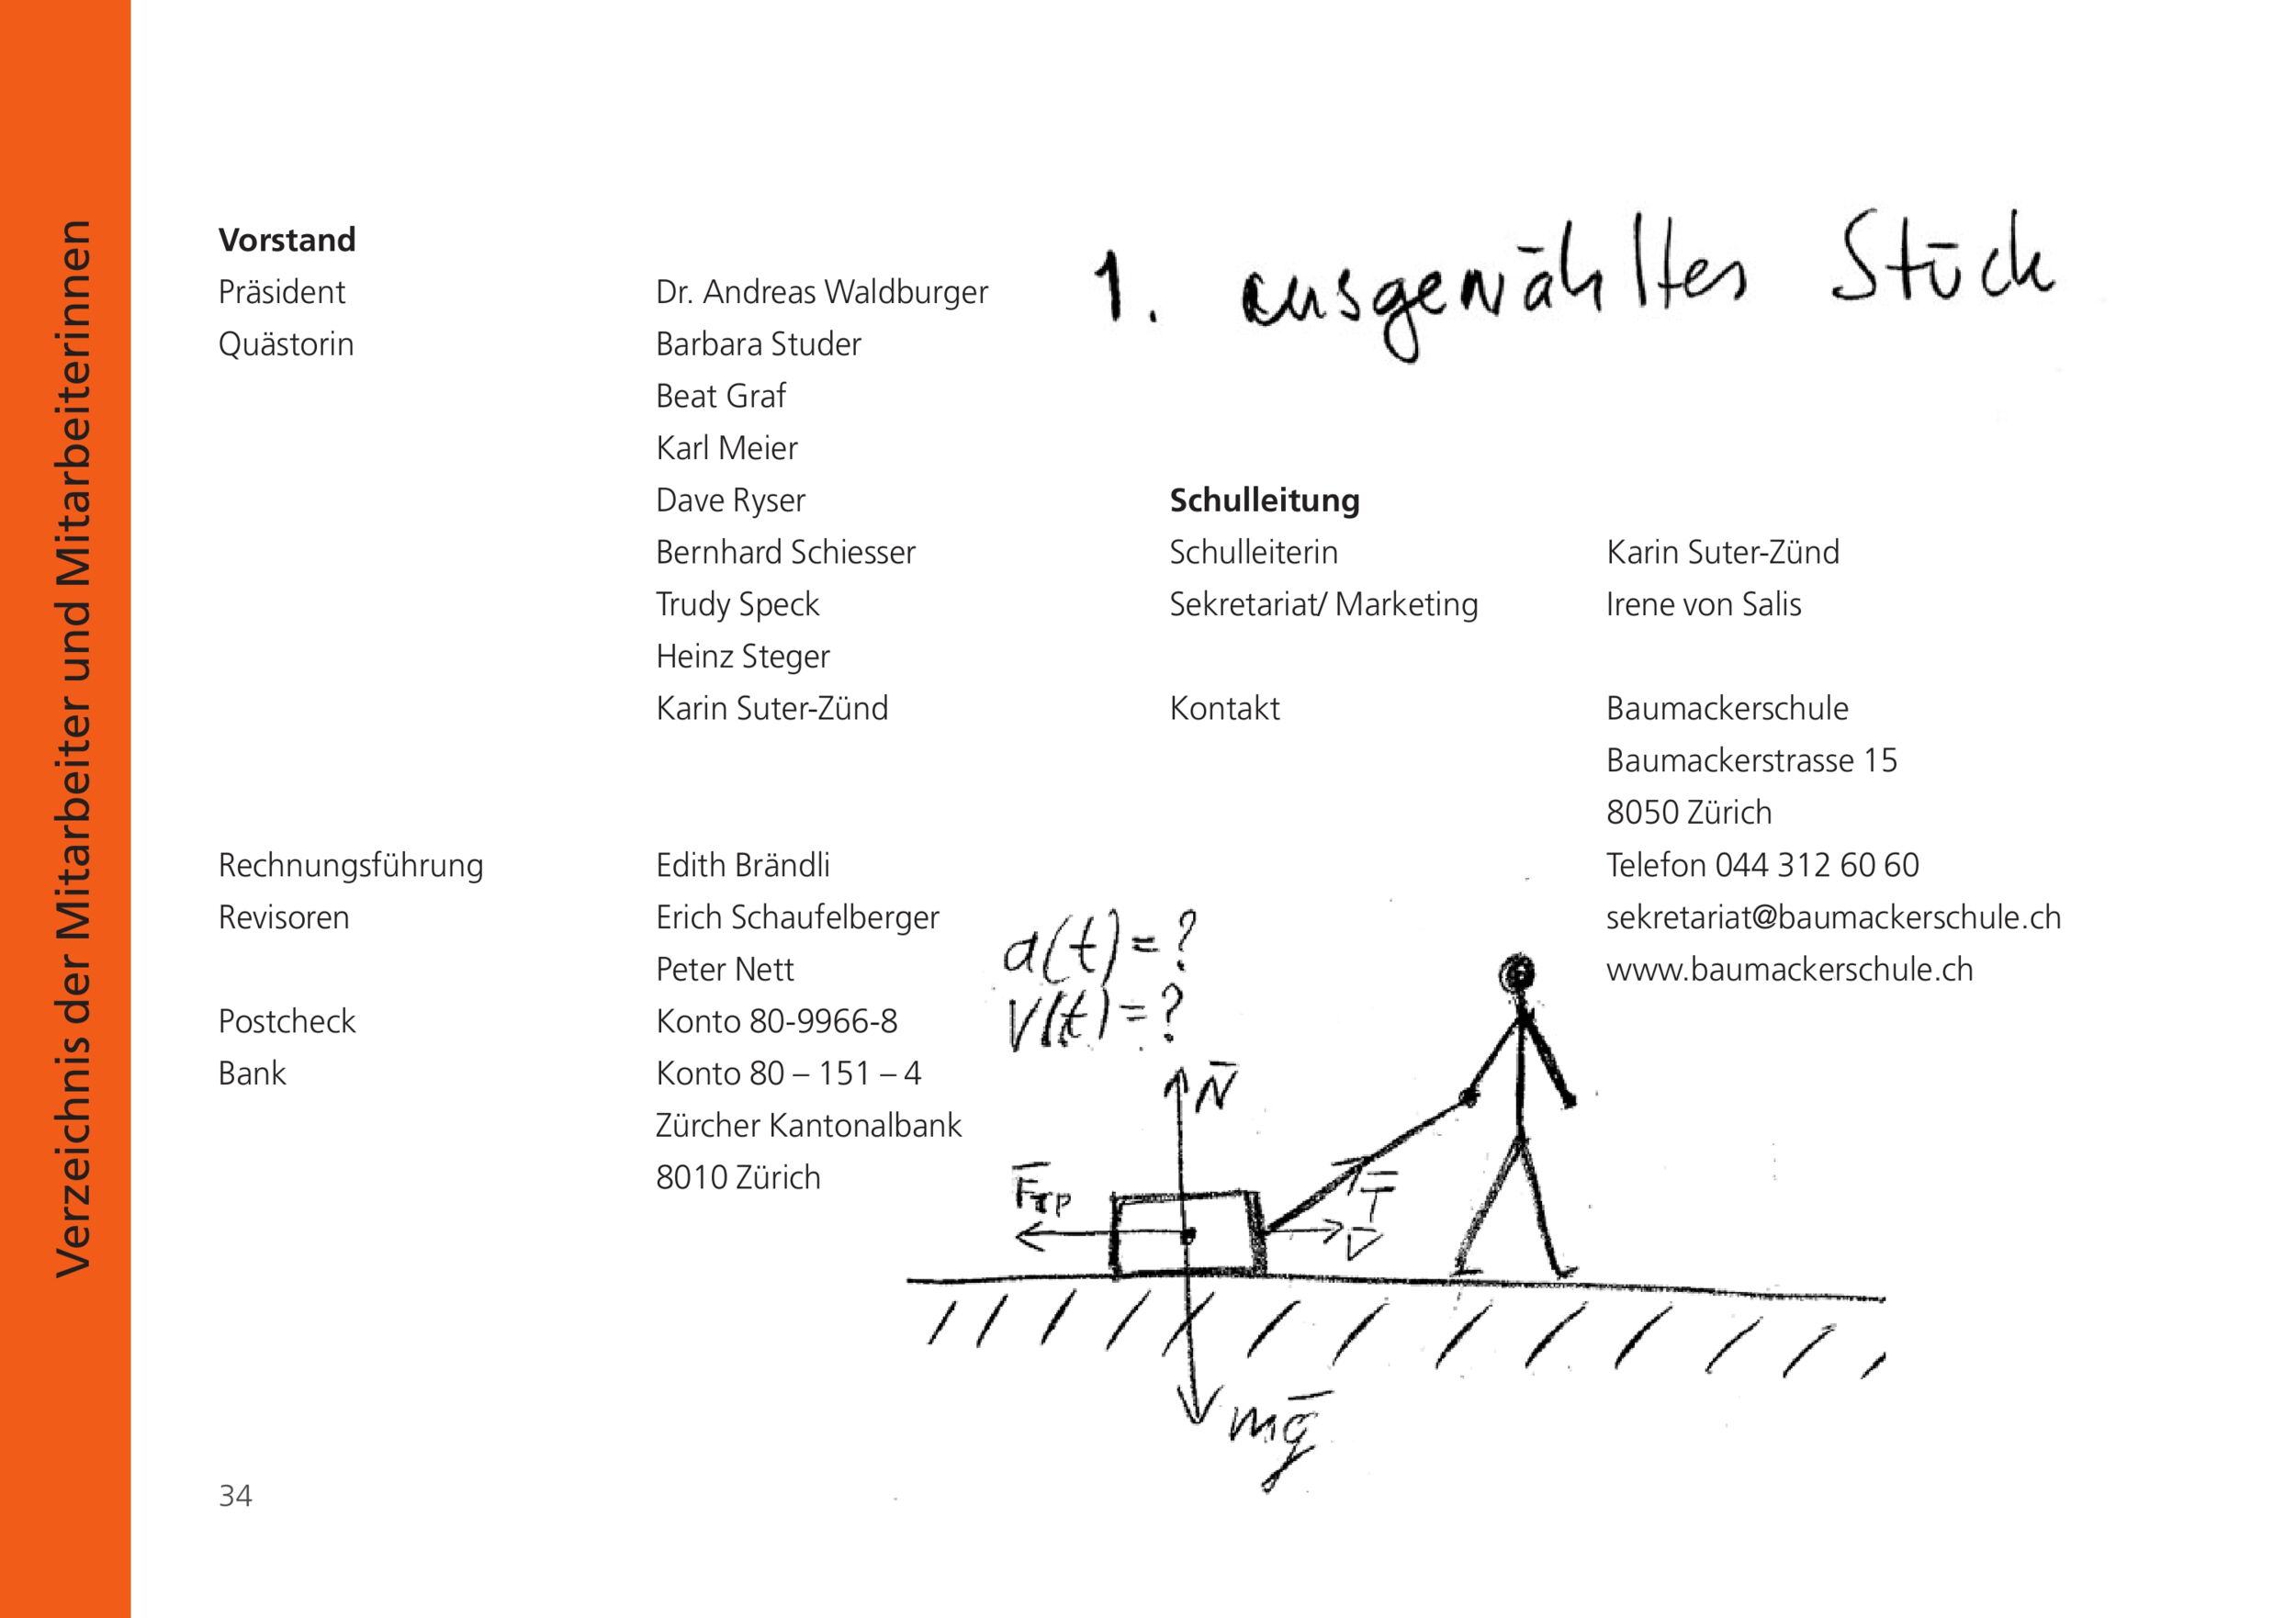 Verzeichnis der Mitarbeiter und Mitarbeiterinnen
1. ausgewähltes Stück
Vorstand
Präsident Dr. Andreas Waldburger
Quästorin Barbara Studer
Beat Graf
Karl Meier
Dave Ryser
Bernhard Schiesser
Trudy Speck
Heinz Steger
Karin Suter-Zünd
Rechnungsführung Edith Brändli
Revisoren Erich Schaufelberger
Peter Nett
Postcheck Konto 80-9966-8
Bank Konto 80 – 151 – 4
Zürcher Kantonalbank
8010 Zürich
Schulleitung
Schulleiterin Karin Suter-Zünd
Sekretariat/ Marketing Irene von Salis
Kontakt Baumackerschule
Baumackerstrasse 15
8050 Zürich
Telefon 044 312 60 60
sekretariat@baumackerschule.ch
www.baumackerschule.ch
a(t)=?
v(t)=?
N̅
F̅тр
T̅
v̅
mg̅
34